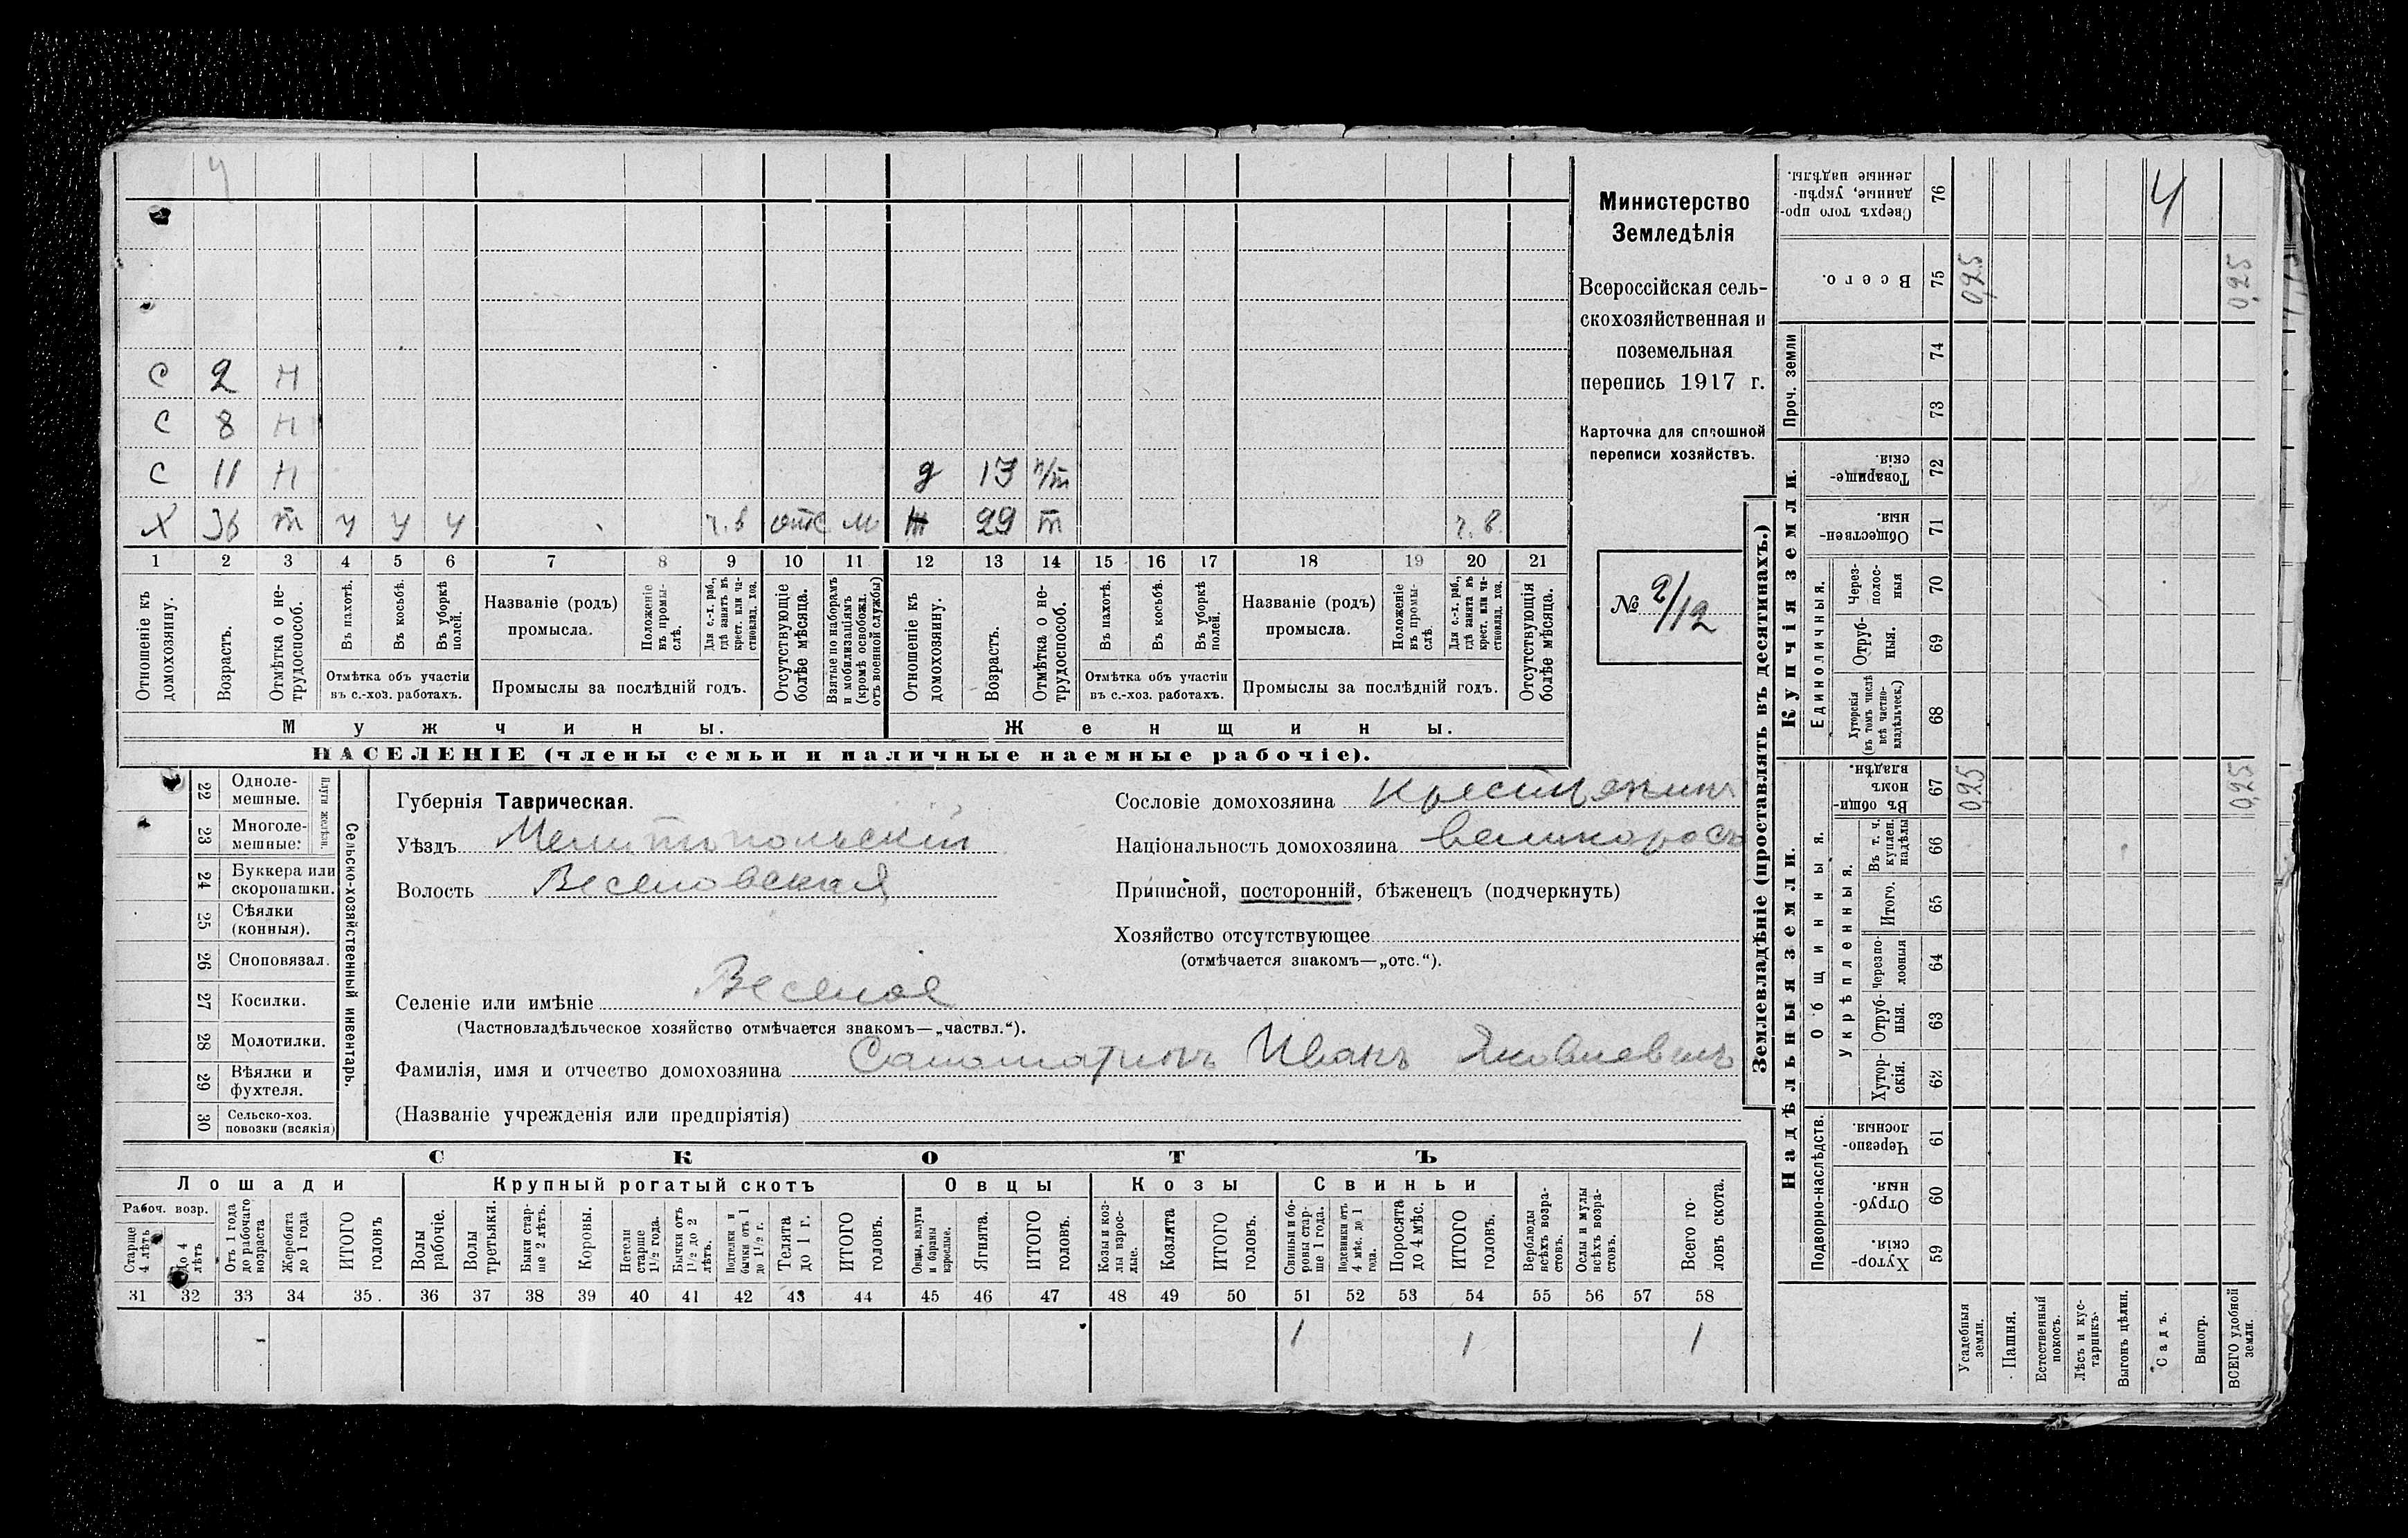 Ч
С 2 Н
С 8 Н
С 11 Н д 13 п/т
Х 36 т ч ч ч ч. в отс м Ж 29 т ч. в.
1 2 3 4 5 6 7 8 9 10 11 12 13 14 15 16 17 18 19 20 21
Отношеніе къ домохозяину.
Возрастъ.
Отмѣтка о нетрудоспособ.
Въ пахотѣ.
Въ косьбѣ.
Въ уборкѣ полей.
Отмѣтка объ участіи
въ с.-хоз. работахъ.
Названіе (родъ)
промысла.
Положеніе въ промыслѣ.
Для с.-х. раб., гдѣ занятъ въ крест. или частновлад. хоз.
Промыслы за послѣдній годъ.
Отсутствующіе болѣе мѣсяца.
Взятые по наборамъ и мобилизаціямъ (кромѣ освобожд. отъ военной службы)
Отношеніе къ домохозяину.
Возрастъ.
Отмѣтка о нетрудоспособ.
Въ пахотѣ.
Въ косьбѣ.
Въ уборкѣ полей.
Отмѣтка объ участіи
въ с.-хоз. работахъ.
Названіе (родъ)
промысла.
Положеніе въ промыслѣ.
Для с.-х. раб., гдѣ занята въ крест. или частновлад. хоз.
Промыслы за послѣдній годъ.
Отсутствующія болѣе мѣсяца.
Мужчины. Женщины.
НАСЕЛЕНІЕ (члены семьи и наличные наемные рабочіе).
Министерство
Земледѣлія
Всероссійская сель-
скохозяйственная и
поземельная
перепись 1917 г.
Карточка для сплошной
переписи хозяйствъ.
№ 2/12
22 Одноле-
мешные.
23 Многоле-
мешные.
Плуги желѣзн.
24 Буккера или
скоропашки.
25 Сѣялки
(конныя).
26 Сноповязал.
27 Косилки.
28 Молотилки.
29 Вѣялки и
фухтеля.
30 Сельско-хоз.
повозки (всякія)
Сельско-хозяйственный инвентарь.
Губернія Таврическая.
Уѣздъ Мелитопольскій
Волость Веселовская
Сословіе домохозяина Крестьянинъ
Національность домохозяина великоросъ
Приписной, посторонній, бѣженецъ (подчеркнуть)
Хозяйство отсутствующее
(отмѣчается знакомъ—„отс.“).
Селеніе или имѣніе Веселое
(Частновладѣльческое хозяйство отмѣчается знакомъ—„частвл.“).
Фамилія, имя и отчество домохозяина Иванъ Яковлевичъ
(Названіе учрежденія или предпріятія)
СКОТЪ
Лошади Крупный рогатый скотъ Овцы Козы Свиньи
Рабоч. возр.
Старше 4 лѣтъ
До 4 лѣтъ
Отъ 1 года до рабочаго возраста
Жеребята до 1 года
ИТОГО головъ
Волы рабочіе.
Волы третьяки.
Быки старше 2 лѣтъ.
Коровы.
Нетели старше 1½ года.
Бычки отъ 1½ до 2 лѣтъ.
Подтелки и бычки отъ 1 до 1½ г.
Телята до 1 г.
ИТОГО головъ.
Овцы, валухи и бараны взрослые.
Ягнята.
ИТОГО головъ.
Козы и козлы взрослые.
Козлята
ИТОГО головъ.
Свиньи и боровы старше 1 года.
Подсвинки отъ 4 мѣс. до 1 года.
Поросята до 4 мѣс.
ИТОГО головъ.
Верблюды всѣхъ возрастовъ.
Ослы и мулы всѣхъ возрастовъ.
Всего головъ скота.
31 32 33 34 35 36 37 38 39 40 41 42 43 44 45 46 47 48 49 50 51 52 53 54 55 56 57 58
1 1 1
Землевладѣніе (проставлять въ десятинахъ.)
Надѣльныя земли. Купчія земли. Проч. земли
Подворно-наслѣдств.
Общинныя.
Укрѣпленныя.
Единоличныя.
Сверхъ того проданные, укрѣпленные надѣлы. 76 Ч
Всего. 75 0,25 0,25
74
73
Товарищескія. 72
Общественныя. 71
Черезполосныя 70
Отрубныя. 69
Хуторскія (въ томъ числѣ всѣ частновладѣльческ.) 68
Въ общинномъ владѣн. 67 0,25 0,25
Въ т. ч. куплен. надѣлы 66
Итого. 65
Черезполосныя 64
Отрубныя. 63
Хуторскія. 62
Черезполосныя. 61
Отрубныя. 60
Хуторскія. 59
Усадебныя земли.
Пашня.
Естественный покосъ.
Лѣсъ и кустарникъ.
Выгонъ цѣлин.
Садъ.
Виногр.
ВСЕГО удобной земли.